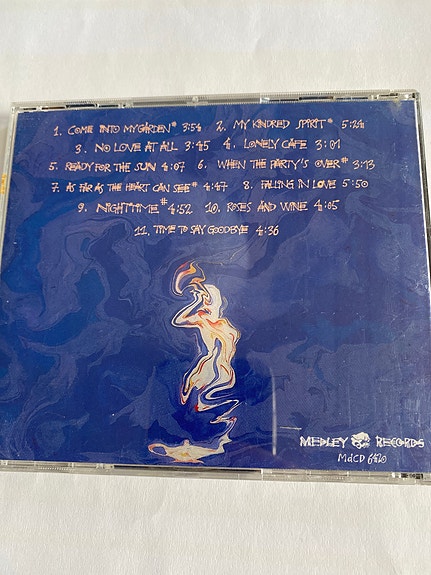 1. COME INTO MY GARDEN* 3:54 2. MY KINDRED SPIRIT* 5:24
3. NO LOVE AT ALL 3:45 4. LONELY CAFE 3:01
5. READY FOR THE SUN 4:07 6. WHEN THE PARTY'S OVER* 3:13
7. AS FAR AS THE HEART CAN SEE* 4:47 8. FALLING IN LOVE 5:50
9. NIGHTTIME* 4:52 10. ROSES AND WINE 4:05
11. TIME TO SAY GOODBYE 4:36
MEDLEY RECORDS
MdCD 6420